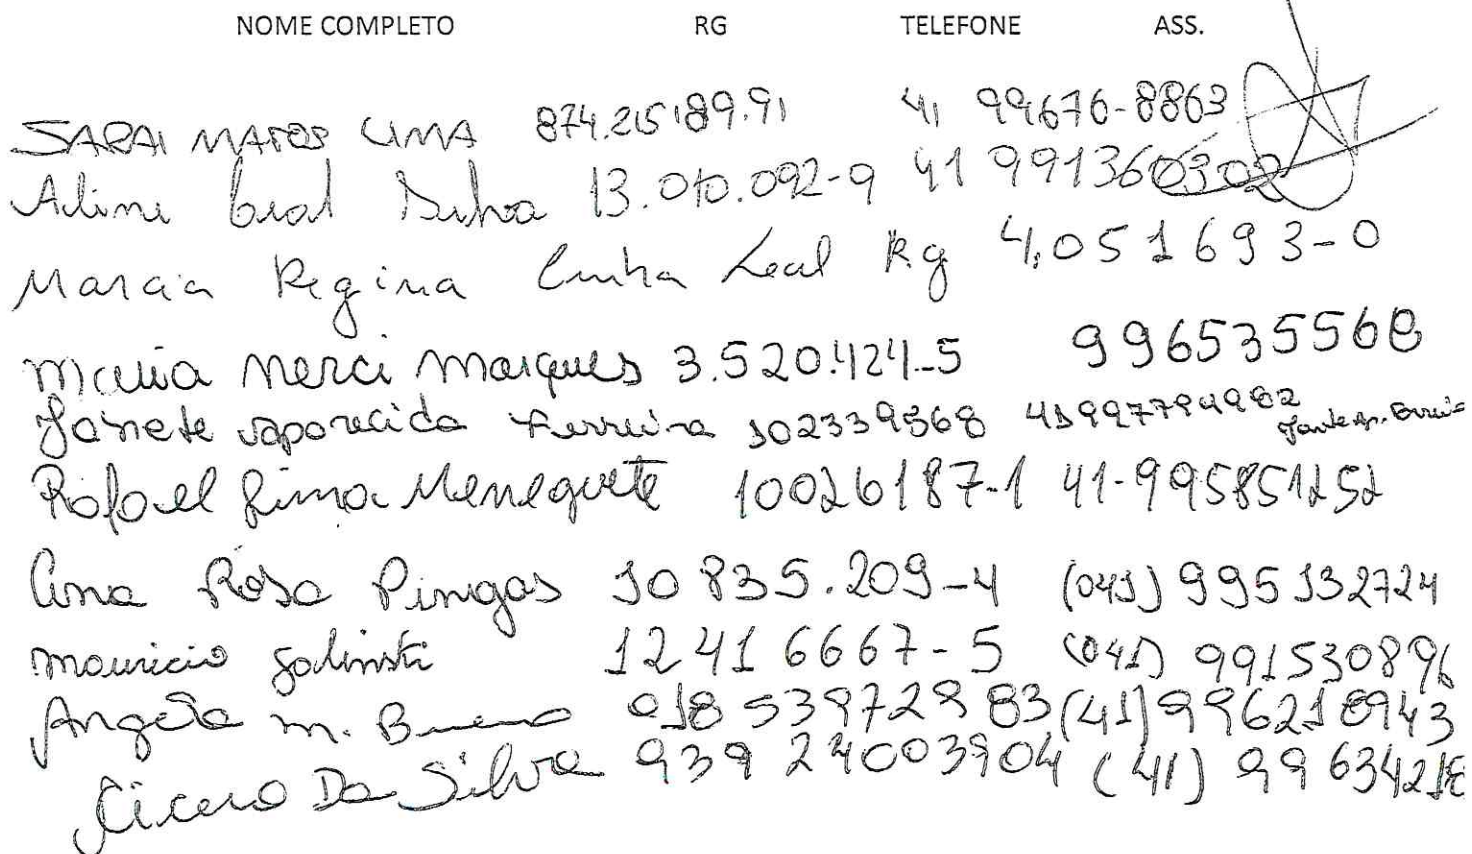 NOME COMPLETO RG TELEFONE ASS.
SARAI MATOS LIMA 874.215189.91 41 99676-8863
Aline Leal Silva 13.010.092-9 41 991360302
Marcia Regina Cunha Leal Rg 4.051693-0
Maria Nerci Marques 3.520.424-5 996535568
Janete aparecida Ferreira 102339568
Rafael Lima Meneguete 10026187-1 41-995851252
Ana Rosa Pingas 10835.209-4 (041) 995132724
mauricio Golinski 12416667-5 (041) 991530896
Angela m. Bueno 018 539729 83 (41) 996218943
Cicero Da Silva 939 24003904 (41)